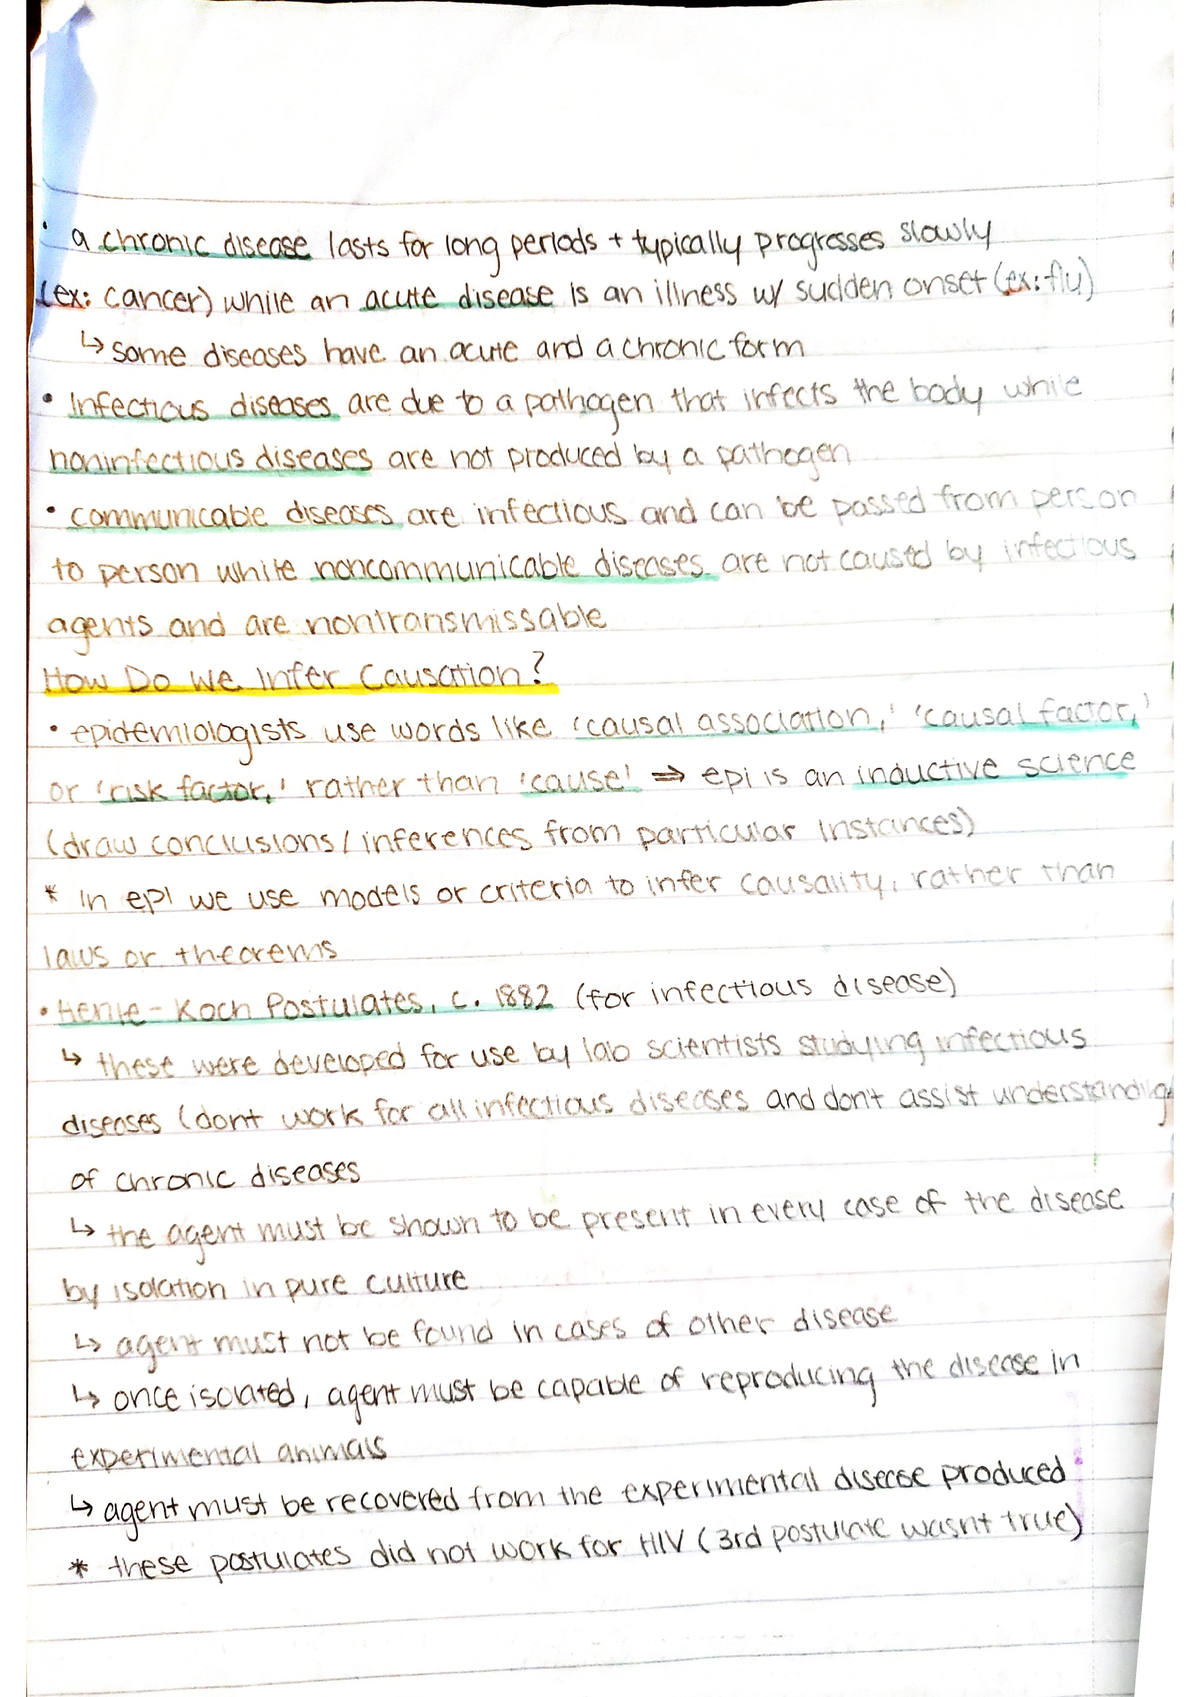 • a chronic disease lasts for long periods + typically progresses slowly
(ex: cancer) while an acute disease is an illness w/ sudden onset (ex: flu)
↳ some diseases have an acute and a chronic form
• Infectious diseases are due to a pathogen that infects the body while
noninfectious diseases are not produced by a pathogen
• communicable diseases are infectious and can be passed from person
to person while noncommunicable diseases are not caused by infectious
agents and are nontransmissable
How Do We Infer Causation?
• epidemiologists use words like 'causal association,' 'causal factor,'
or 'risk factor,' rather than 'cause' ⇒ epi is an inductive science
(draw conclusions/inferences from particular instances)
* In epi we use models or criteria to infer causality, rather than
laws or theorems
• Henle-Koch Postulates, c. 1882 (for infectious disease)
↳ these were developed for use by lab scientists studying infectious
diseases (dont work for all infectious diseases and don't assist understanding
of chronic diseases
↳ the agent must be shown to be present in every case of the disease
by isolation in pure culture
↳ agent must not be found in cases of other disease
↳ once isolated, agent must be capable of reproducing the disease in
experimental animals
↳ agent must be recovered from the experimental disease produced
* these postulates did not work for HIV (3rd postulate wasn't true)